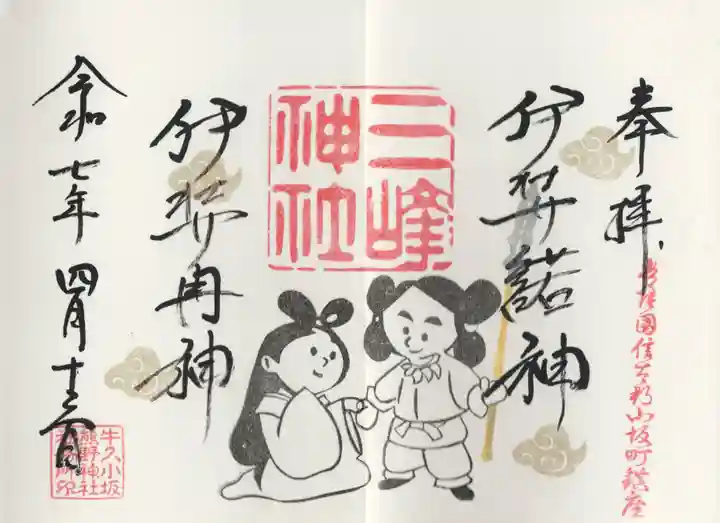 奉拝
常陸國信太郡小坂町鎮座
伊弉諾神
三峰
神社
伊弉冉神
令和七年 四月十三日
牛久小坂
熊野神社